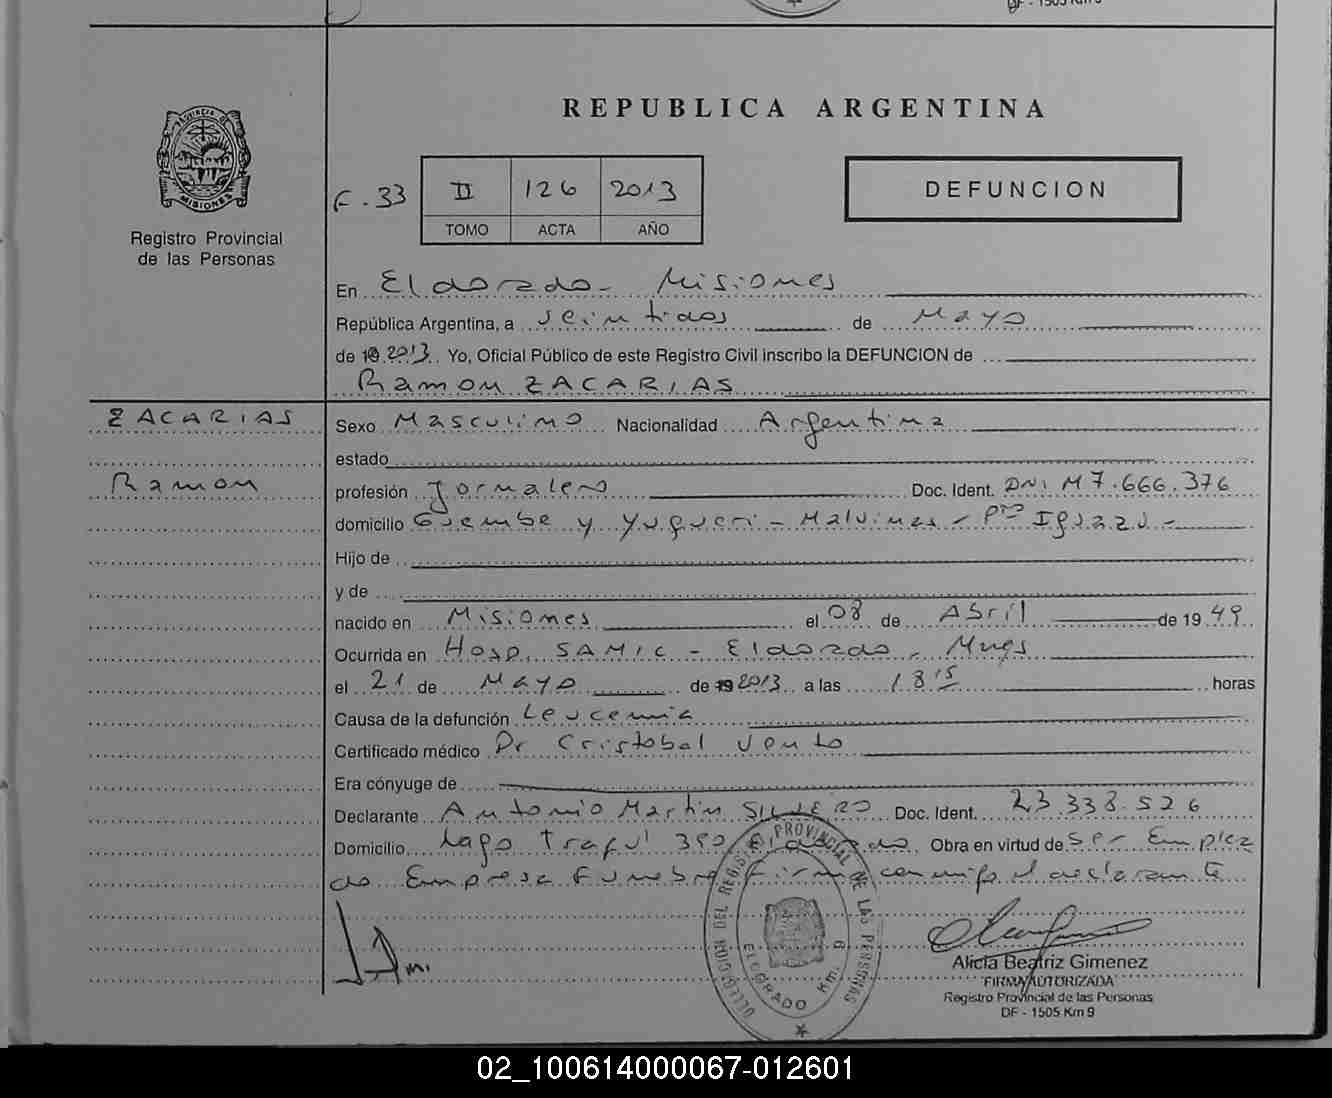 DF - 1505 Km 9
REPUBLICA ARGENTINA
PROVINCIA DE
MISIONES
Registro Provincial
de las Personas
F. 33
II 126 2013
TOMO ACTA AÑO
DEFUNCION
En Eldorado - Misiones
República Argentina, a veintidos de Mayo
de 2013. Yo, Oficial Público de este Registro Civil inscribo la DEFUNCION de
Ramon ZACARIAS
ZACARIAS
Ramon
Sexo Masculino Nacionalidad Argentina
estado
profesión Jornalero Doc. Ident. DNI M 7.666.376
domicilio Guembe y Yugueri - Malvinas - Pto Iguazu -
Hijo de
y de
nacido en Misiones el 08 de Abril de 1949
Ocurrida en Hosp. SAMIC - Eldorado, Mnes
el 21 de Mayo de 2013 a las 18 15 horas
Causa de la defunción Leucemia
Certificado médico Dr Cristobal
Era cónyuge de
Declarante Antonio Martin SILVERO Doc. Ident. 23.338.526
Domicilio Lago Traful 390 Eldorado Obra en virtud de Ser Emplea
do Empresa Funebre Firma conmigo el declarante
DELEGACION DEL REGISTRO PROVINCIAL DE LAS PERSONAS
ELDORADO Km. 9
Alicia Beatriz Gimenez
FIRMA AUTORIZADA
Registro Provincial de las Personas
DF - 1505 Km 9
02_100614000067-012601